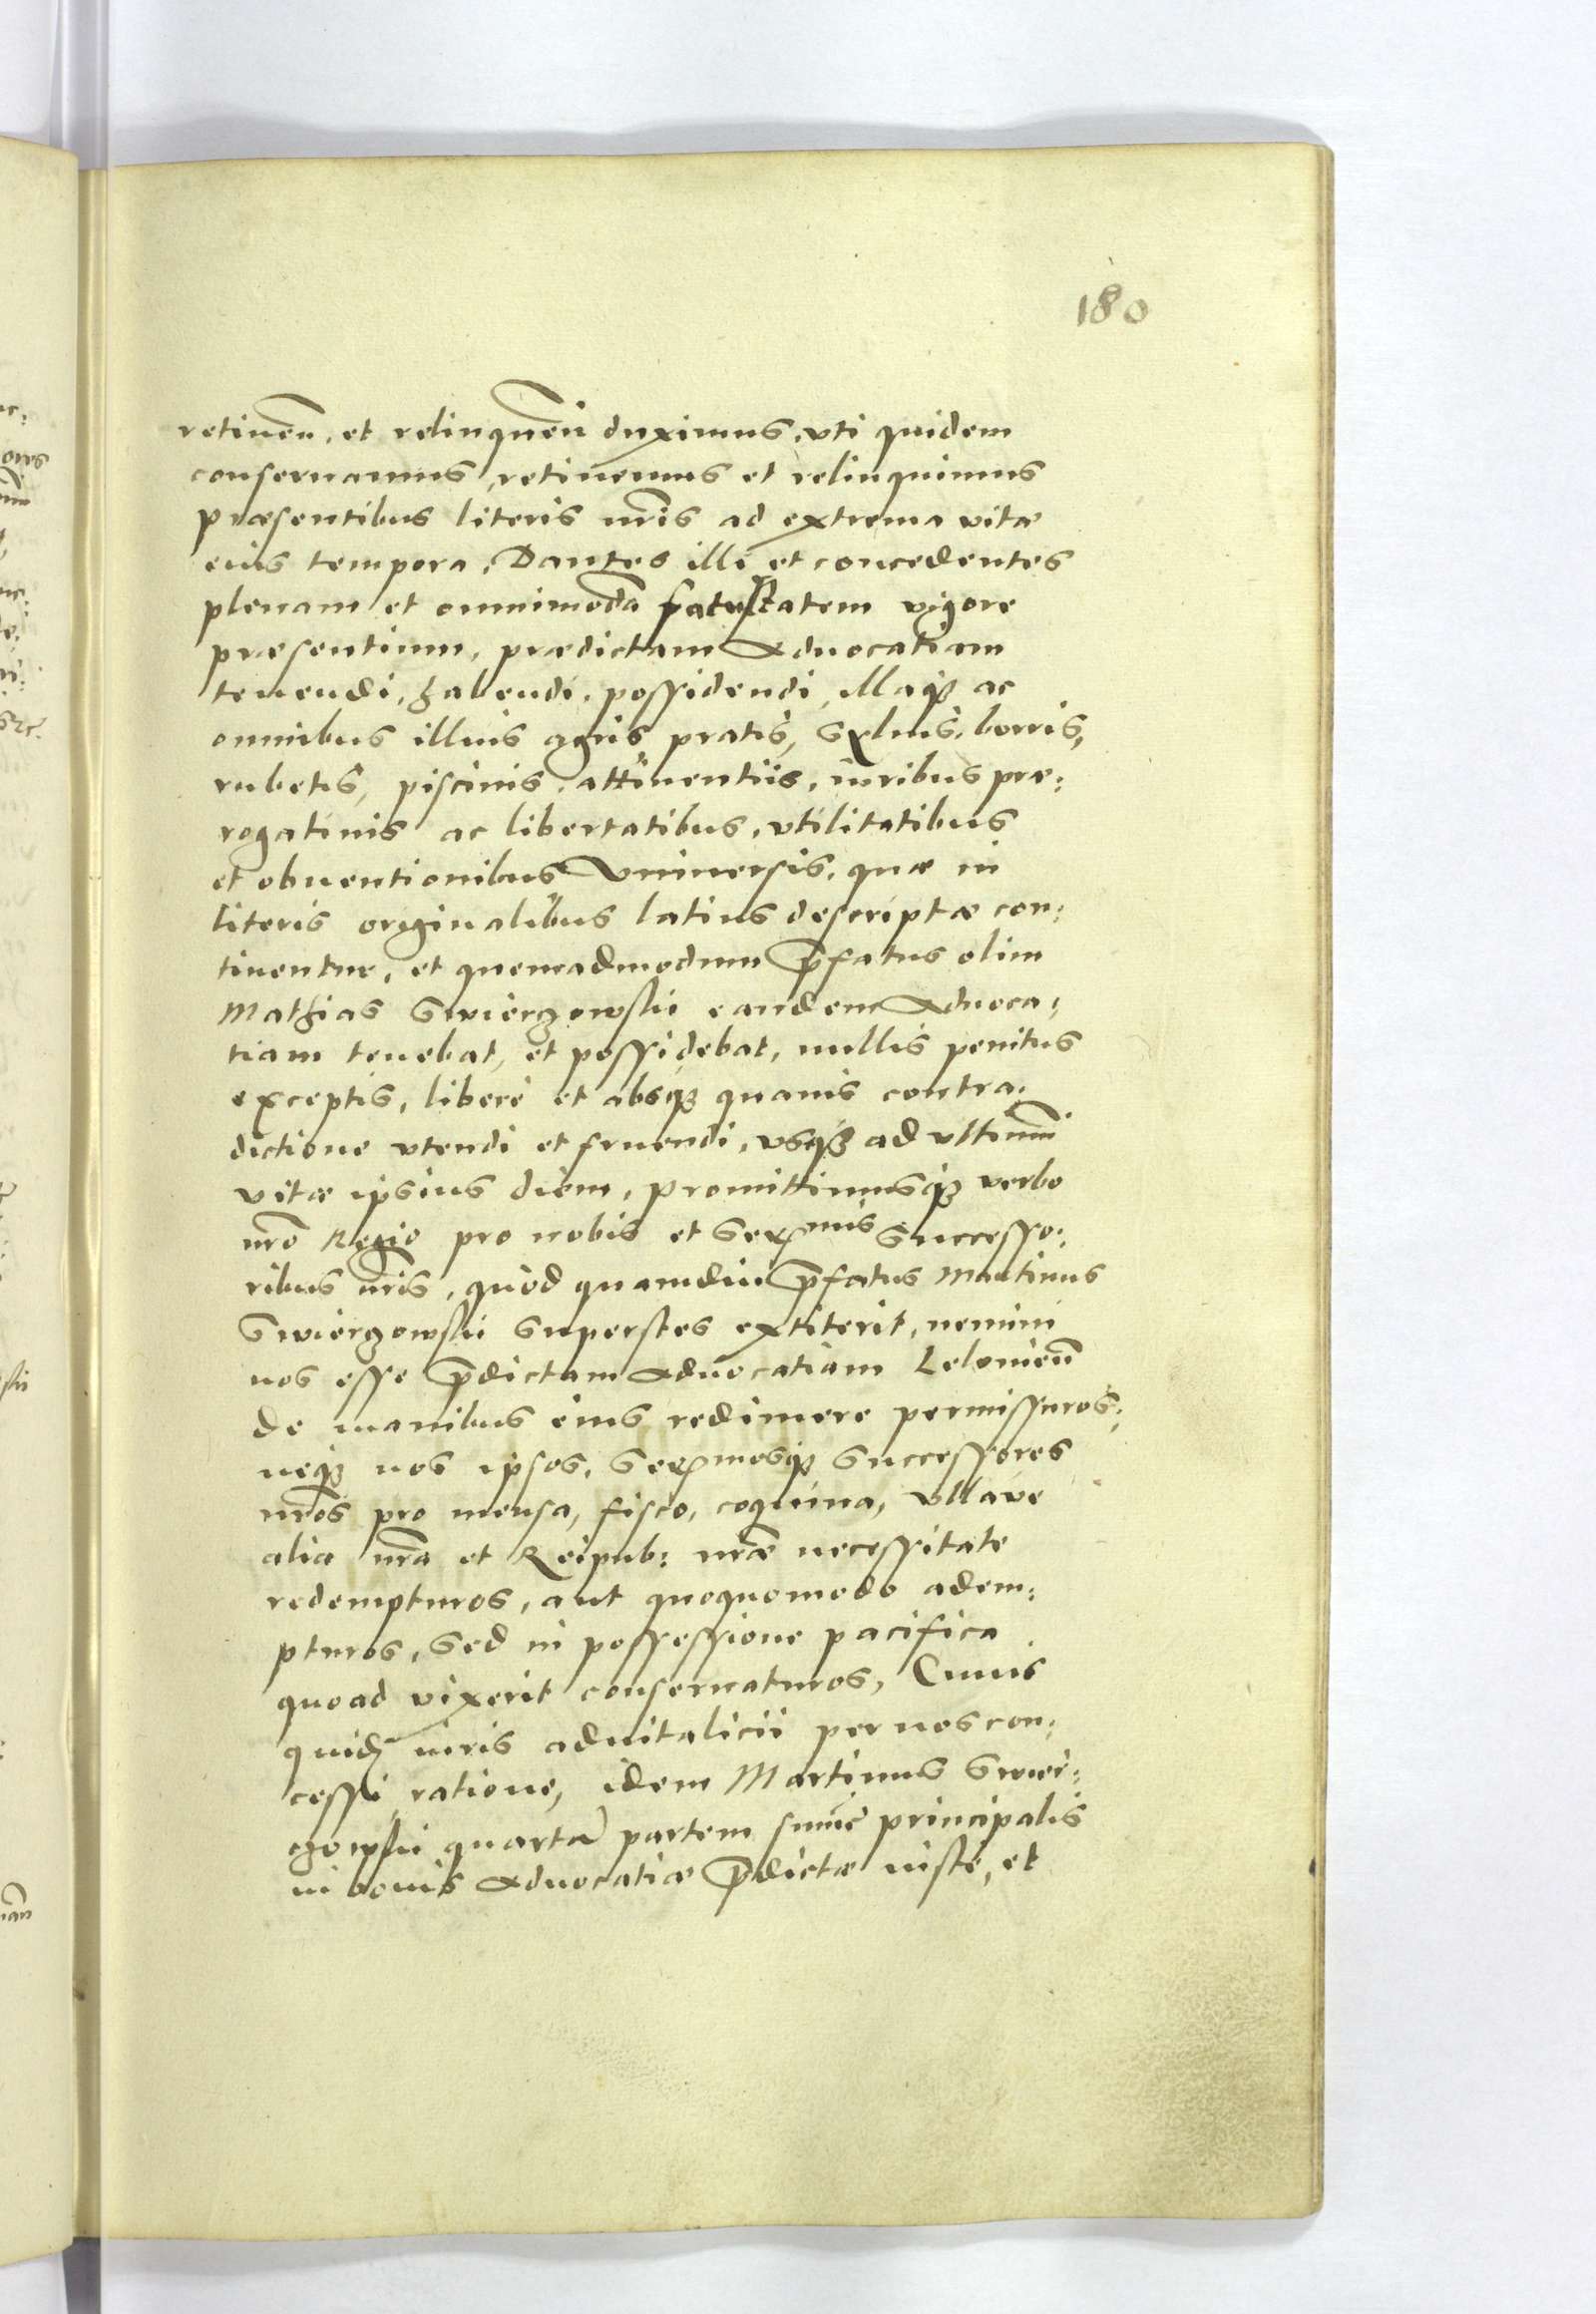 180
retineñ, et relinqueñ duximus, vti quidem
conseruamus, retinemus et relinquimus
præsentibus literis nr̃is ad extrema vitæ
eius tempora, Dantes illi et concedentes
plenam et omnimodã facultatem vigore
præsentium, prædictam Aduocatiam
tenendi, habendi, possidendi, illaqꝫ ac
omnibus illius agris, pratis, syluis, borris,
rubetis, piscinis, attinentiis, iuribus præ:
rogatiuis ac libertatibus, vtilitatibus
et obuentionibus Vniuersis, quæ in
literis originalibus latius descriptæ con:
tinentur, et quemadmodum p̃fatus olim
Mathias Swierzowskii eandem Aduoca:
tiam tenebat, et possidebat, nullis penitus
exceptis, liberè et absqꝫ quauis contra:
dictione vtendi et fruendi, vsqꝫ ad vltimũ
vitæ ipsius diem, promittimusqꝫ verbo
nr̃o Regio pro nobis et Serᵐⁱˢ Successo:
ribus nr̃is, quòd quamdiu p̃fatus Martinus
Swierzowskii superstes extiterit, nemini
nos esse p̃dictam Aduocatiam Lelouieñ
de manibus eius redimere permissuros:
neqꝫ nos ipsos, Serᵐosqꝫ Successores
nr̃os pro mensa, fisco, coquina, vllaue
alia nr̃a et Reipub: nr̃æ necessitate
redempturos, aut quoquomodo adem:
pturos, sed in possessione pacifica
quoad vixerit conseruaturos, Cuius
quidẽ iuris aduitalicii per nos con:
cessi ratione, idem Martinus Swier:
zowskii quartã partem sum̃e principalis
in bonis Aduocatiæ p̃dictæ iuste, et